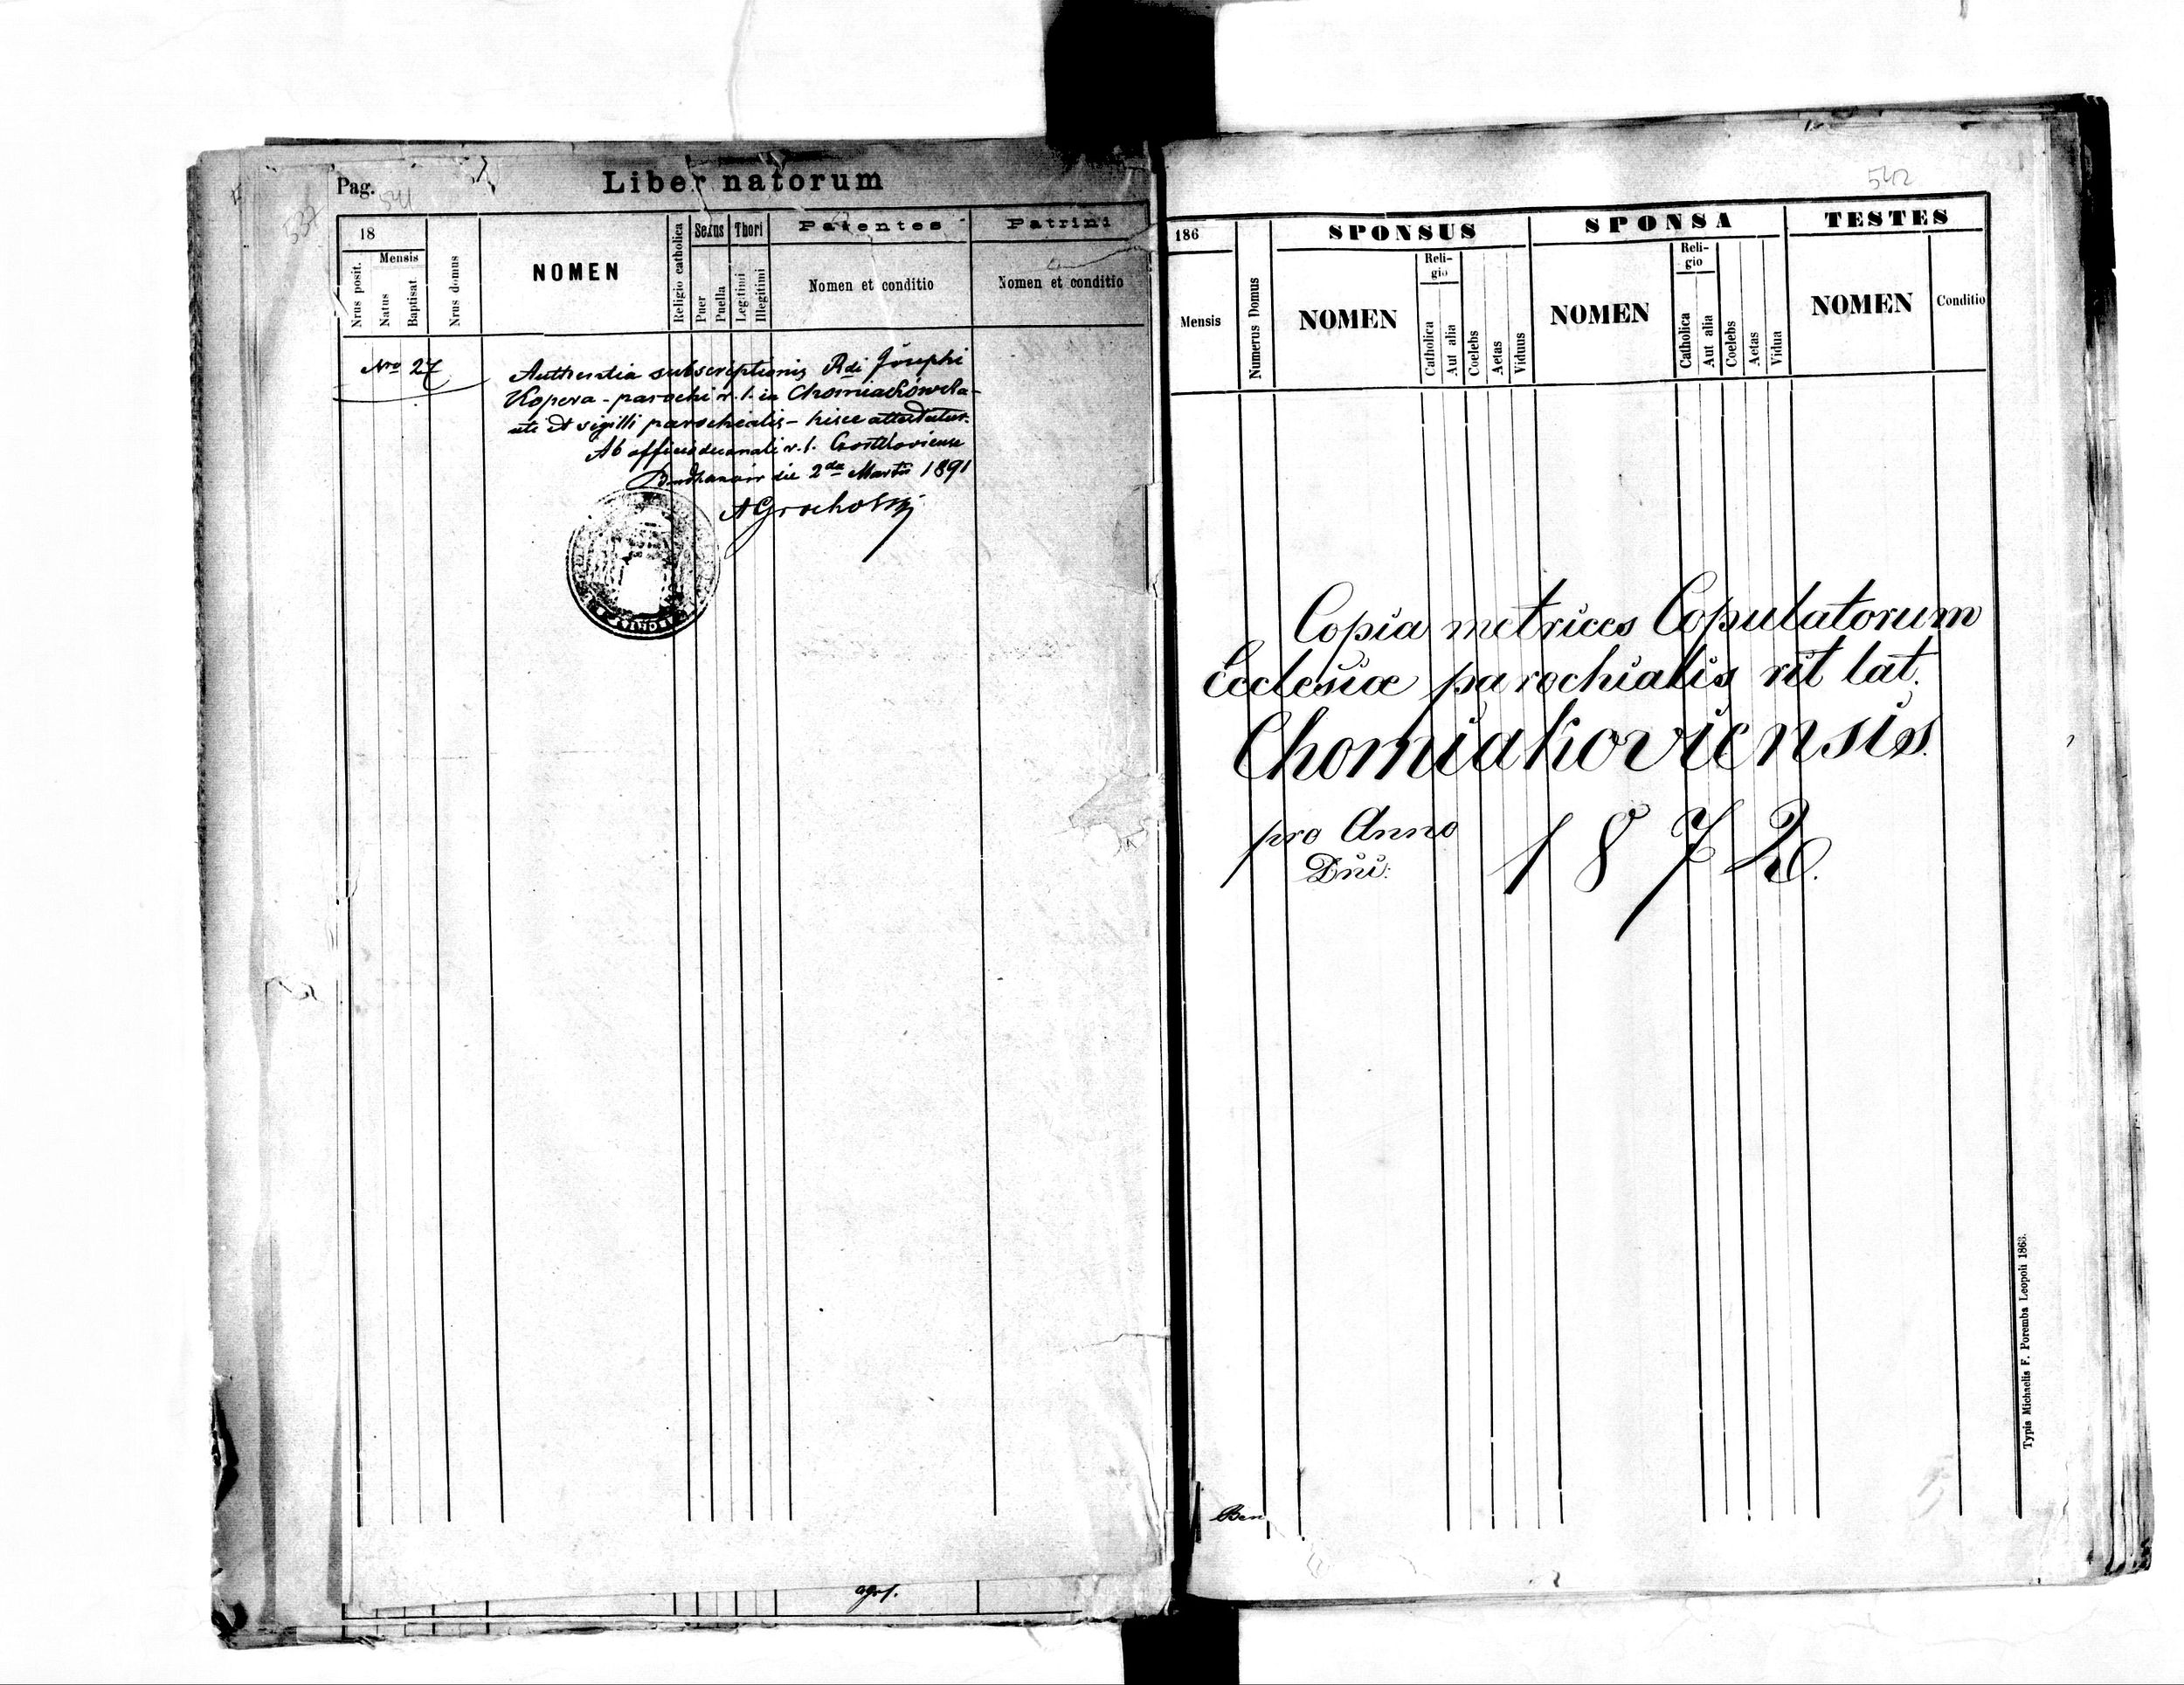 Pag. 541
Liber natorum
537
18
Mensis
Nrus posit.
Natus
Baptisat.
Nrus domus
NOMEN
Religio catholica
Sexus
Puer
Puella
Thori
Legitimi
Illegitimi
Parentes
Nomen et conditio
Patrini
Nomen et conditio
Nro 27
Authentia subscriptionis Rdi Josephi
Kopera - parochi r. l. in Chomiakówka -
uti et sigilli parochialis - hisce attestatur.
Ab officio decanali r. l. Czortkoviensi
Budzanów die 2da Martii 1891
AGrocholski
agrc.
542
186
Mensis
Numerus Domus
SPONSUS
NOMEN
Reli-
gio
Catholica
Aut alia
Coelebs
Aetas
Viduus
SPONSA
NOMEN
Reli-
gio
Catholica
Aut alia
Coelebs
Aetas
Vidua
TESTES
NOMEN
Conditio
Copia metrices Copulatorum
Ecclesiæ parochialis rit lat.
Chomiakoviensis.
pro Anno
Dni: 1872.
Ben
Typis Michaelis F. Poremba Leopoli 1863.